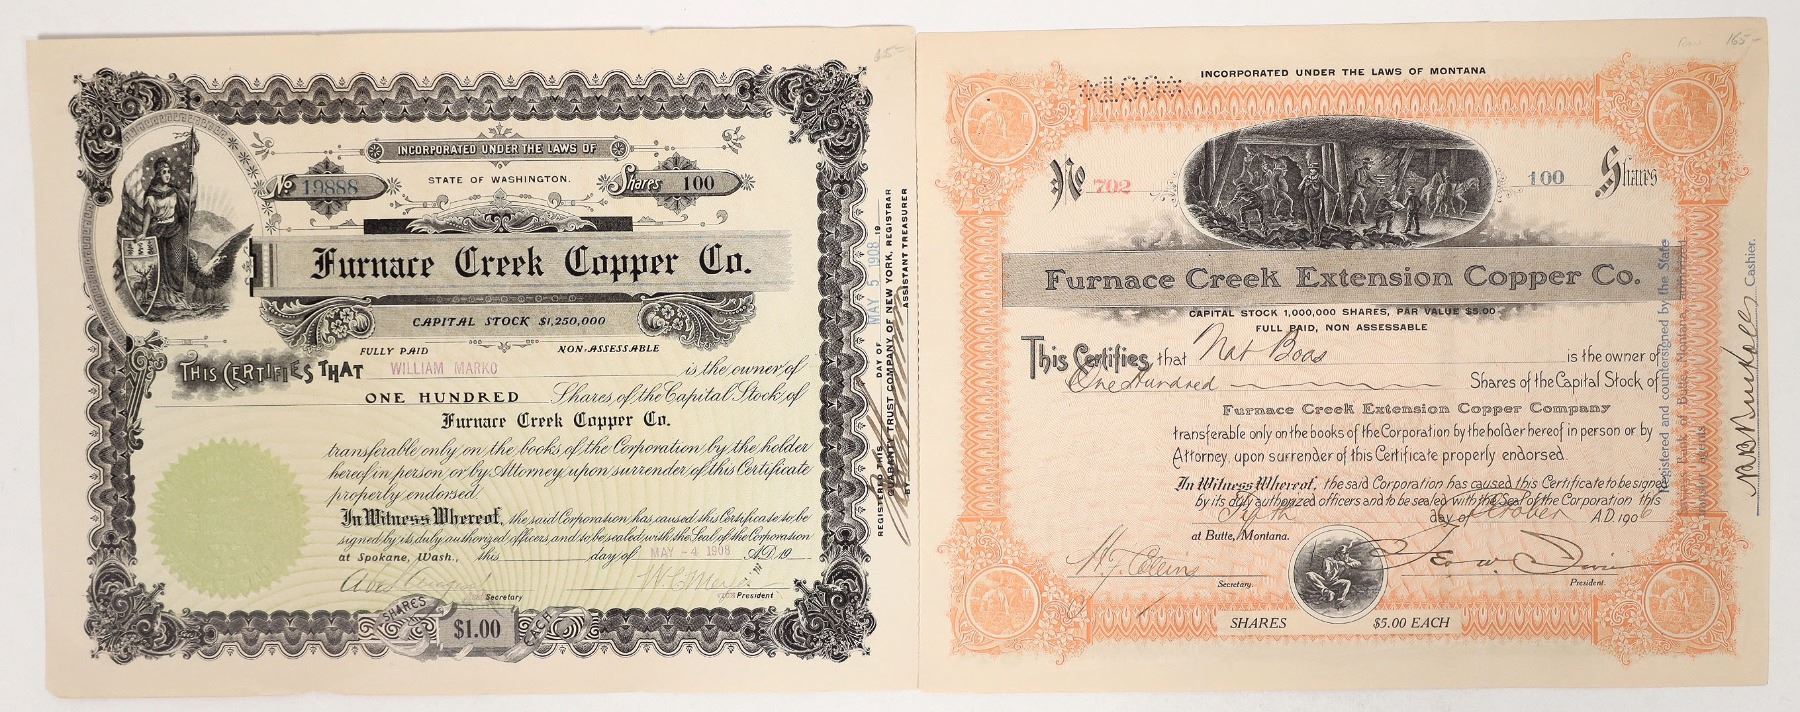 15-
INCORPORATED UNDER THE LAWS OF
STATE OF WASHINGTON.
No 19888
Shares 100
Furnace Creek Copper Co.
CAPITAL STOCK $1,250,000
FULLY PAID NON-ASSESSABLE
THIS CERTIFIES THAT WILLIAM MARKO is the owner of
ONE HUNDRED Shares of the Capital Stock of
Furnace Creek Copper Co.
transferable only on the books of the Corporation by the holder
hereof in person or by Attorney upon surrender of this Certificate
properly endorsed.
In Witness Whereof, the said Corporation has caused this Certificate to be
signed by its duly authorized officers and to be sealed with the Seal of the Corporation
at Spokane, Wash., this day of MAY -4 1908 A.D. 19
Secretary
VICE President
SHARES $1.00 EACH
REGISTERED THIS DAY OF MAY 5 1908 19
GUARANTY TRUST COMPANY OF NEW YORK, REGISTRAR
BY ASSISTANT TREASURER
165-
INCORPORATED UNDER THE LAWS OF MONTANA
*100*
No 702
100 Shares
Furnace Creek Extension Copper Co.
CAPITAL STOCK 1,000,000 SHARES, PAR VALUE $5.00
FULL PAID, NON ASSESSABLE
This Certifies that Nat Boas is the owner of
One Hundred Shares of the Capital Stock of
Furnace Creek Extension Copper Company
transferable only on the books of the Corporation by the holder hereof in person or by
Attorney, upon surrender of this Certificate properly endorsed.
In Witness Whereof, the said Corporation has caused this Certificate to be signed
by its duly authorized officers and to be sealed with the Seal of the Corporation this
Fifth day of October A.D. 1906
at Butte, Montana.
Secretary.
President.
SHARES $5.00 EACH
Registered and countersigned by the State
Bank of Butte, Montana,
Cashier.